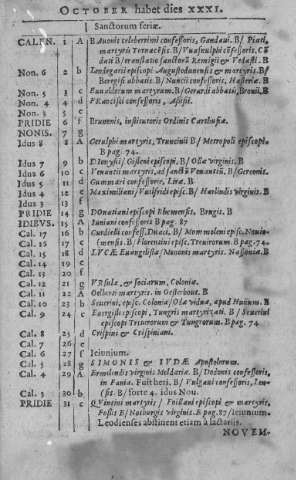 OCTOBER habet dies XXXI.
Sanctorum feriæ.
CALEN. 1 A Bavonis celeberrimi confessoris, Gandavi. B/ Piati
martyris Ternacēsis. B/ Vuasnulphi cōfessoris. Cō
dati B/translatio sanctorū Remigii & Vedasti. B
Non. 6 2 b Leodegarii episcopi Augustodunensis & martyris. B/
Beregisi abbatis. B/ Nuncii confessoris, Hasteriæ. B
Non. 5 3 c Euualdorum martyrum. B/ Gerardi abbatis, Bronii. B
Non. 4 4 d Francisci confessoris, Assisii.
Non. 3 5 e
PRIDIE 6 f Brunonis, institutoris Ordinis Carthusiæ.
NONIS. 7 g
Idus 8 8 A Gerulphi martyris, Truncinii B/ Metropoli episcopi.
B pag. 74.
Idus 7 9 b Dionysii/ Gisleni episcopi B/ Odæ virginis. B
Idus 6 10 c Venantii martyris, ad sanctū Venantiū. B/Gereonis.
Idus 5 11 d Gummari confessoris, Liræ. B
Idus 4 12 e Maximiliani/ Vuilfridi episc. B/ Harlindis virginis. B
Idus 3 13 f
PRIDIE 14 g Donatiani episcopi Rhemensis, Brugis. B
IDIBVS. 15 A Juniani confessoris B pag. 87
Cal. 17 16 b Gordielli confess. Duaci. B/ Mommoleni episc. Novio-
mensis. B/ Florentini episc. Trevirorum B. pag. 74.
Cal. 16 17 c
Cal. 15 18 d LVCÆ Euangelistæ/ Monontis martyris. Nassoniæ. B
Cal. 14 19 e
Cal. 13 20 f
Cal. 12 21 g Vrsulæ, & sociarum, Coloniæ.
Cal. 11 22 A Gelberti martyris, in Oosterhout. B
Cal. 10 23 b Severini, episc. Coloniæ/ Odæ viduæ, apud Huiium. B
Cal. 9 24 c Evergisli episcopi, Tungris martyrizati. B/ Severini
episcopi Trevirorum & Tungrorum. B pag. 74
Cal. 8 25 d Crispini & Crispiniani.
Cal. 7 26 e
Cal. 6 27 f Ieiunium.
Cal. 5 28 g SIMONIS & IVDÆ Apostolorum.
Cal. 4 29 A Ermelindis virginis Meldariæ. B/ Dodonis confessoris,
in Fania. Fuit heri. B/ Vulgani confessoris,
Cal. 3 30 b B/ forte 4. idus Nou.
PRIDIE 31 c Quintini martyris/ Foillani episcopi & martyris,
Fossis B/ Notburgis virginis. B pag.87/ Ieiunium.
Leodienses abstinent etiam à lactariis.
NOVEM-